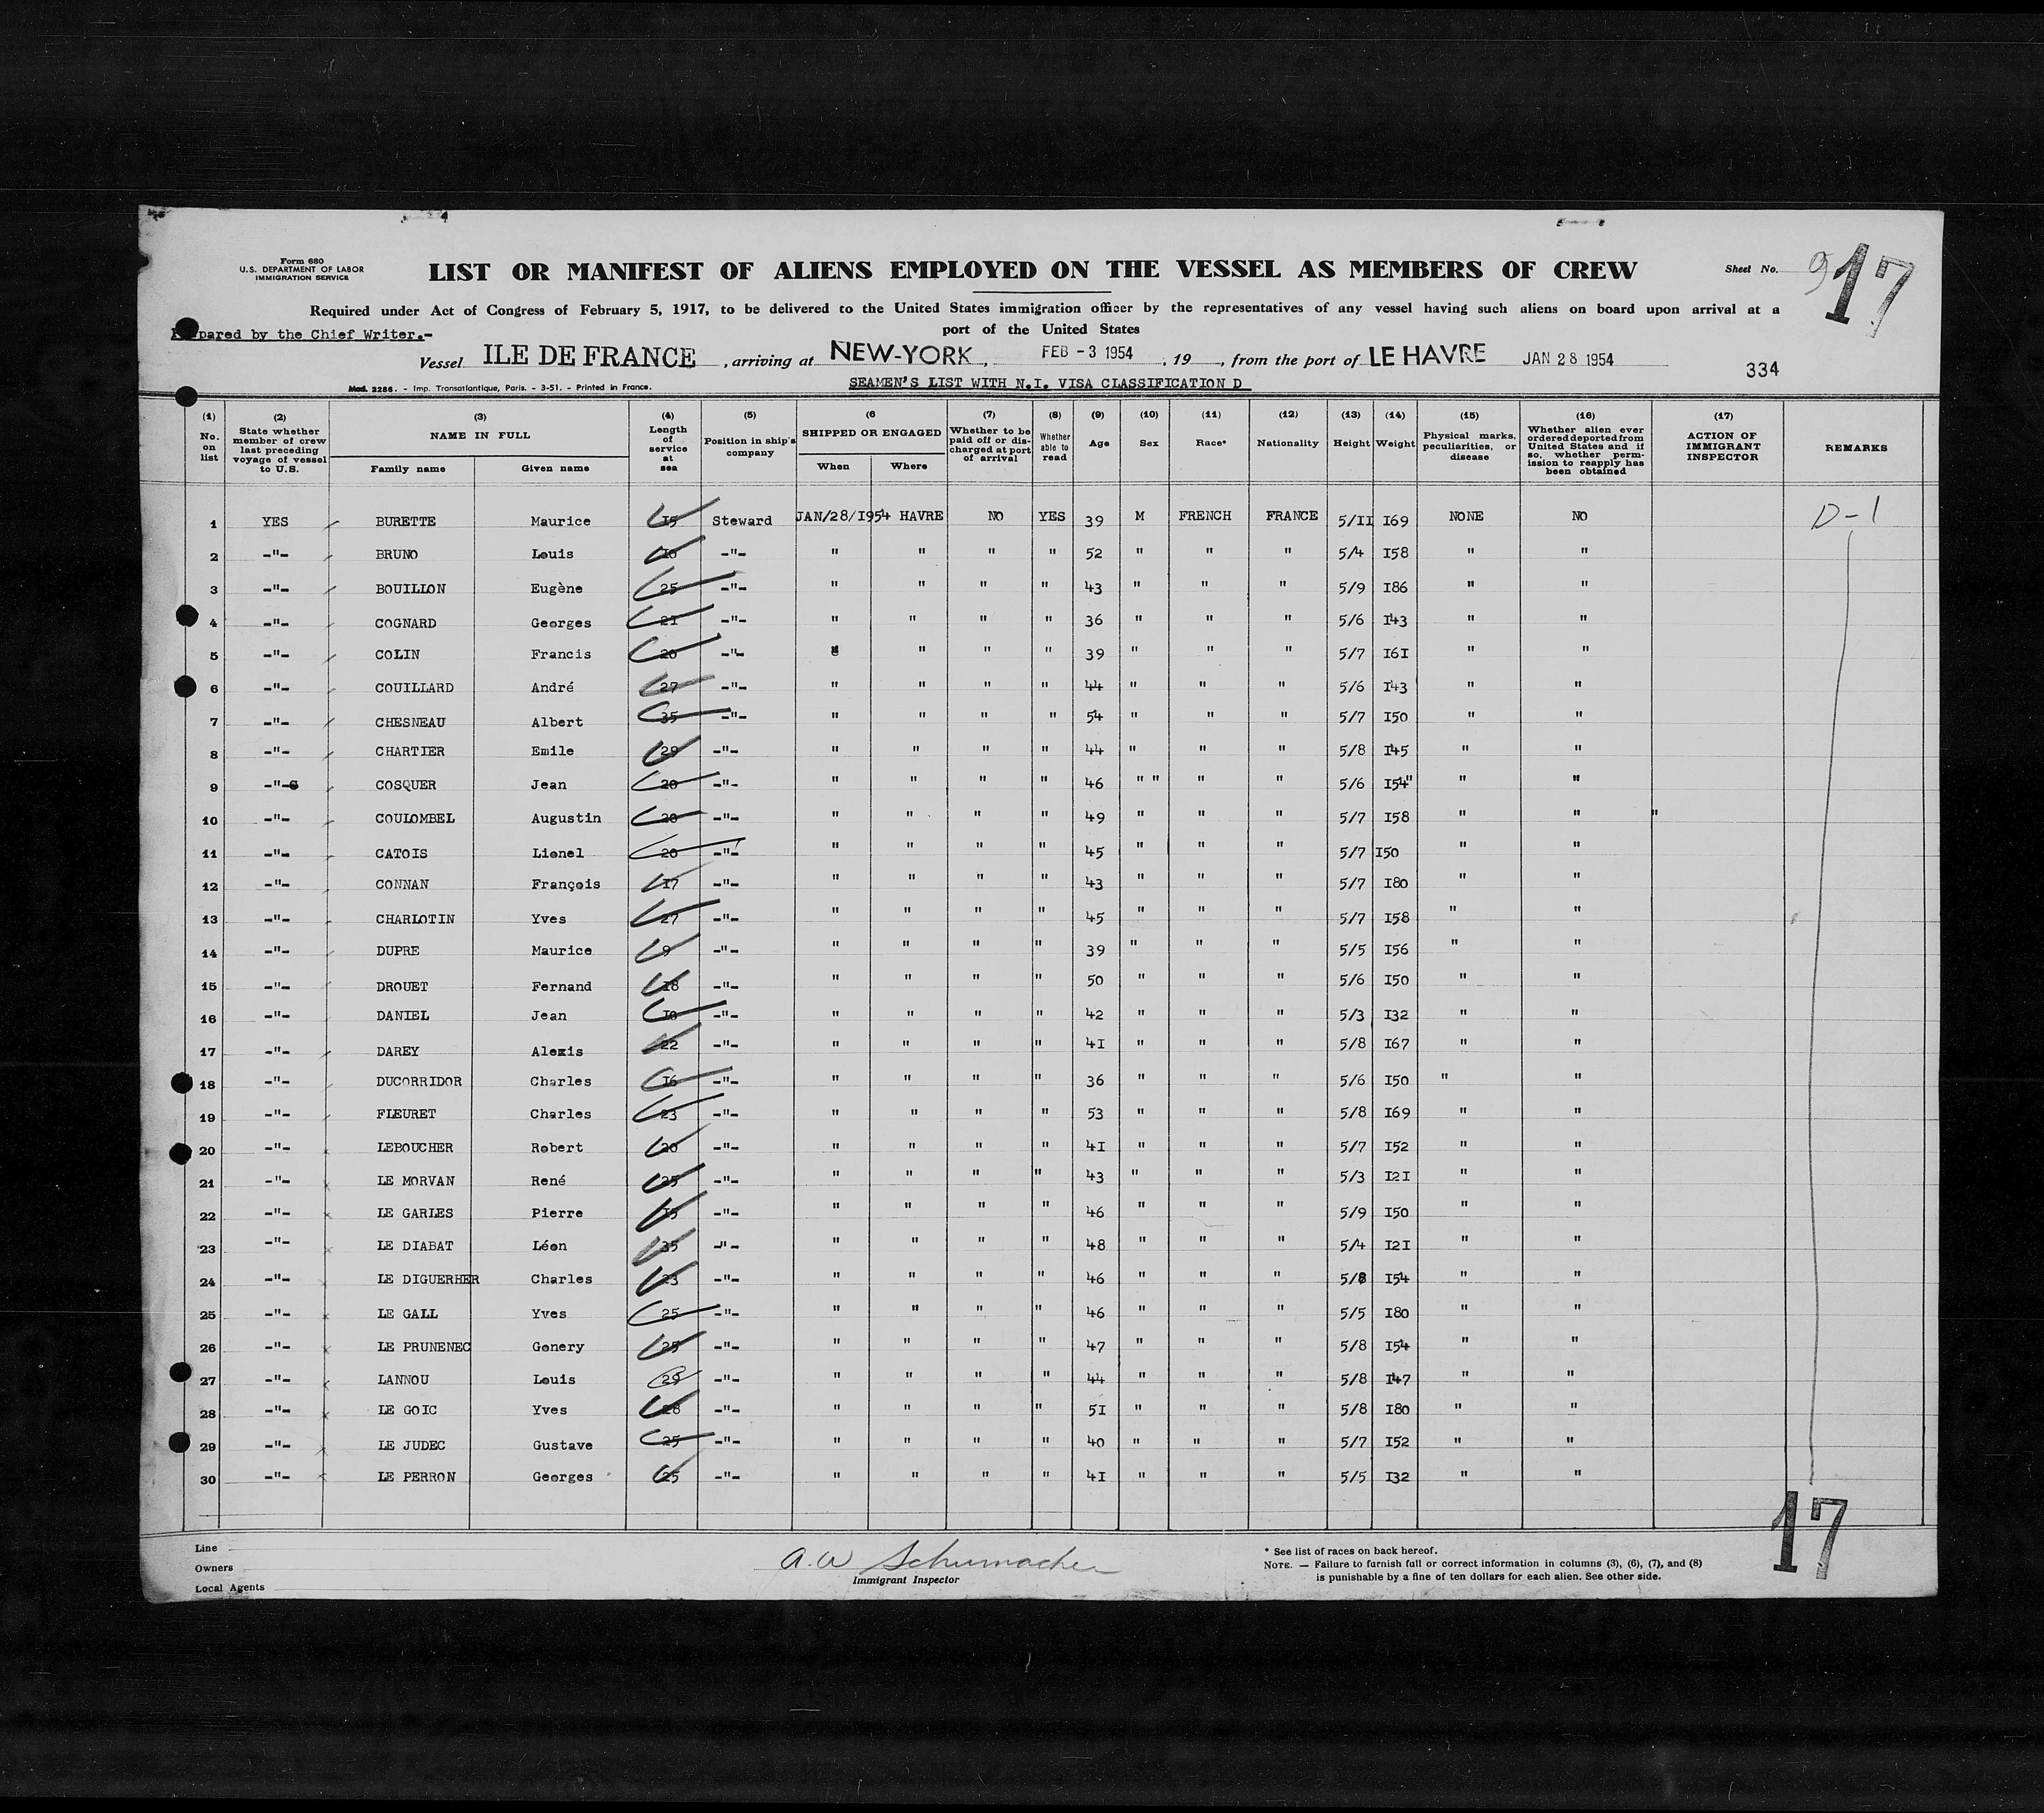 Form 680
U.S. DEPARTMENT OF LABOR
IMMIGRATION SERVICE
LIST OR MANIFEST OF ALIENS EMPLOYED ON THE VESSEL AS MEMBERS OF CREW
Sheet No. 9 17
Required under Act of Congress of February 5, 1917, to be delivered to the United States immigration officer by the representatives of any vessel having such aliens on board upon arrival at a
port of the United States
Prepared by the Chief Writer.-
Vessel ILE DE FRANCE, arriving at NEW-YORK, FEB - 3 1954, 19, from the port of LE HAVRE JAN 28 1954
334
Mod. 2286. - Imp. Transatlantique, Paris. - 3-51. - Printed in France.
SEAMEN'S LIST WITH N.I. VISA CLASSIFICATION D
(1) No. on list (2) State whether member of crew last preceding voyage of vessel to U.S. (3) NAME IN FULL Family name Given name (4) Length of service at sea (5) Position in ship's company (6 SHIPPED OR ENGAGED When Where (7) Whether to be paid off or discharged at port of arrival (8) Whether able to read (9) Age (10) Sex (11) Race* (12) Nationality (13) Height (14) Weight (15) Physical marks, peculiarities, or disease (16) Whether alien ever ordered deported from United States and if so, whether permission to reapply has been obtained (17) ACTION OF IMMIGRANT INSPECTOR REMARKS
1 YES BURETTE Maurice 15 Steward JAN/28/1954 HAVRE NO YES 39 M FRENCH FRANCE 5/II I69 NONE NO D-1
2 -"- BRUNO Louis -"- " " " " 52 " " " 5/4 I58 " "
3 -"- BOUILLON Eugène 25 -"- " " " " 43 " " " 5/9 I86 " "
4 -"- COGNARD Georges 2I -"- " " " " 36 " " " 5/6 I43 " "
5 -"- COLIN Francis 20 -"- " " " 39 " " " 5/7 I6I " "
6 -"- COUILLARD André 27 -"- " " " " 44 " " " 5/6 I43 " "
7 -"- CHESNEAU Albert 35 -"- " " " " 54 " " " 5/7 I50 " "
8 -"- CHARTIER Emile 29 -"- " " " " 44 " " " 5/8 I45 " "
9 -"- COSQUER Jean 20 -"- " " " " 46 " " " " 5/6 I54" " "
10 -"- COULOMBEL Augustin 20 -"- " " " " 49 " " " 5/7 I58 " " "
11 -"- CATOIS Lionel 20 -"- " " " " 45 " " " 5/7 I50 " "
12 -"- CONNAN François I7 -"- " " " " 43 " " " 5/7 I80 " "
13 -"- CHARLOTIN Yves 27 -"- " " " " 45 " " " 5/7 I58 " "
14 -"- DUPRE Maurice 9 -"- " " " " 39 " " " 5/5 I56 " "
15 -"- DROUET Fernand I8 -"- " " " " 50 " " " 5/6 I50 " "
16 -"- DANIEL Jean I0 -"- " " " " 42 " " " 5/3 I32 " "
17 -"- DAREY Alexis 22 -"- " " " " 4I " " " 5/8 I67 " "
18 -"- DUCORRIDOR Charles I6 -"- " " " " 36 " " " 5/6 I50 " "
19 -"- FLEURET Charles 23 -"- " " " " 53 " " " 5/8 I69 " "
20 -"- LEBOUCHER Robert 20 -"- " " " " 4I " " " 5/7 I52 " "
21 -"- LE MORVAN René 25 -"- " " " " 43 " " " 5/3 I2I " "
22 -"- LE GARLES Pierre I5 -"- " " " " 46 " " " 5/9 I50 " "
23 -"- LE DIABAT Léon 35 -"- " " " " 48 " " " 5/4 I2I " "
24 -"- LE DIGUERHER Charles 23 -"- " " " " 46 " " " 5/8 I54 " "
25 -"- LE GALL Yves 25 -"- " " " " 46 " " " 5/5 I80 " "
26 -"- LE PRUNENEC Gonery 25 -"- " " " " 47 " " " 5/8 I54 " "
27 -"- LANNOU Louis 29 -"- " " " " 44 " " " 5/8 I47 " "
28 -"- LE GOIC Yves 28 -"- " " " " 5I " " " 5/8 I80 " "
29 -"- LE JUDEC Gustave 25 -"- " " " " 40 " " " 5/7 I52 " "
30 -"- LE PERRON Georges 25 -"- " " " " 4I " " " 5/5 I32 " "
17
Line
Owners
Local Agents
A. W Schumacher
Immigrant Inspector
* See list of races on back hereof.
NOTE. — Failure to furnish full or correct information in columns (3), (6), (7), and (8)
is punishable by a fine of ten dollars for each alien. See other side.